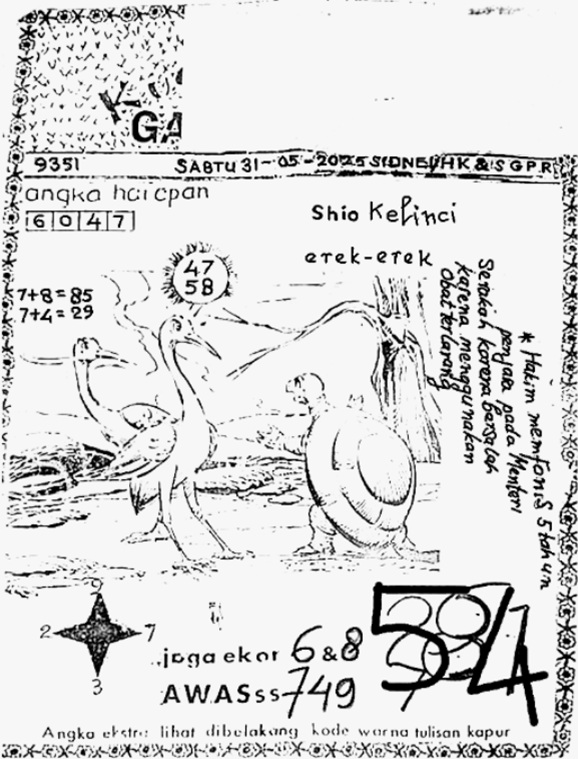 GA
9351 SABTU 31-05-2025 SIDNEY/HK & SGPR
angka harapan
6047
Shio Kelinci
erek-erek
47
58
7+8=85
7+4=29
* Hakim memfonis 5 tahun
penjara pada Menteri
Setakah karena bersalah
karena menggunakan
Obat terlarang
9
2 7
3
jaga ekor 6 & 8
AWASss 749
54
Angka ekstra lihat dibelakang kode warna tulisan kapur